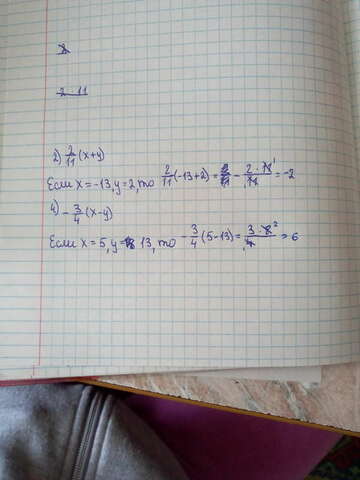 2 · 11
2) 2/11 (x+y)
Если x = -13, y = 2, то 2/11 (-13+2) = - 2 · 11 1/11 = -2
4) - 3/4 (x-y)
Если x = 5, y = 13, то - 3/4 (5-13) = 3 · 8 2/4 = 6